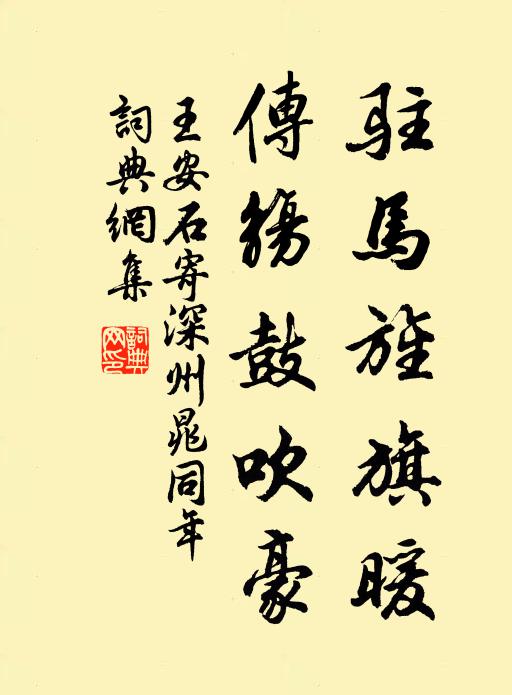 駐馬旌旗暖
傳觴鼓吹豪
王安石寄深州晁同年
詞典網集
詞典網印